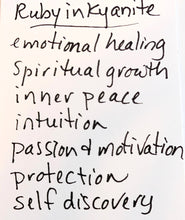 Ruby in Kyanite
emotional healing
Spiritual growth
inner peace
intuition
passion & motivation
protection
self discovery